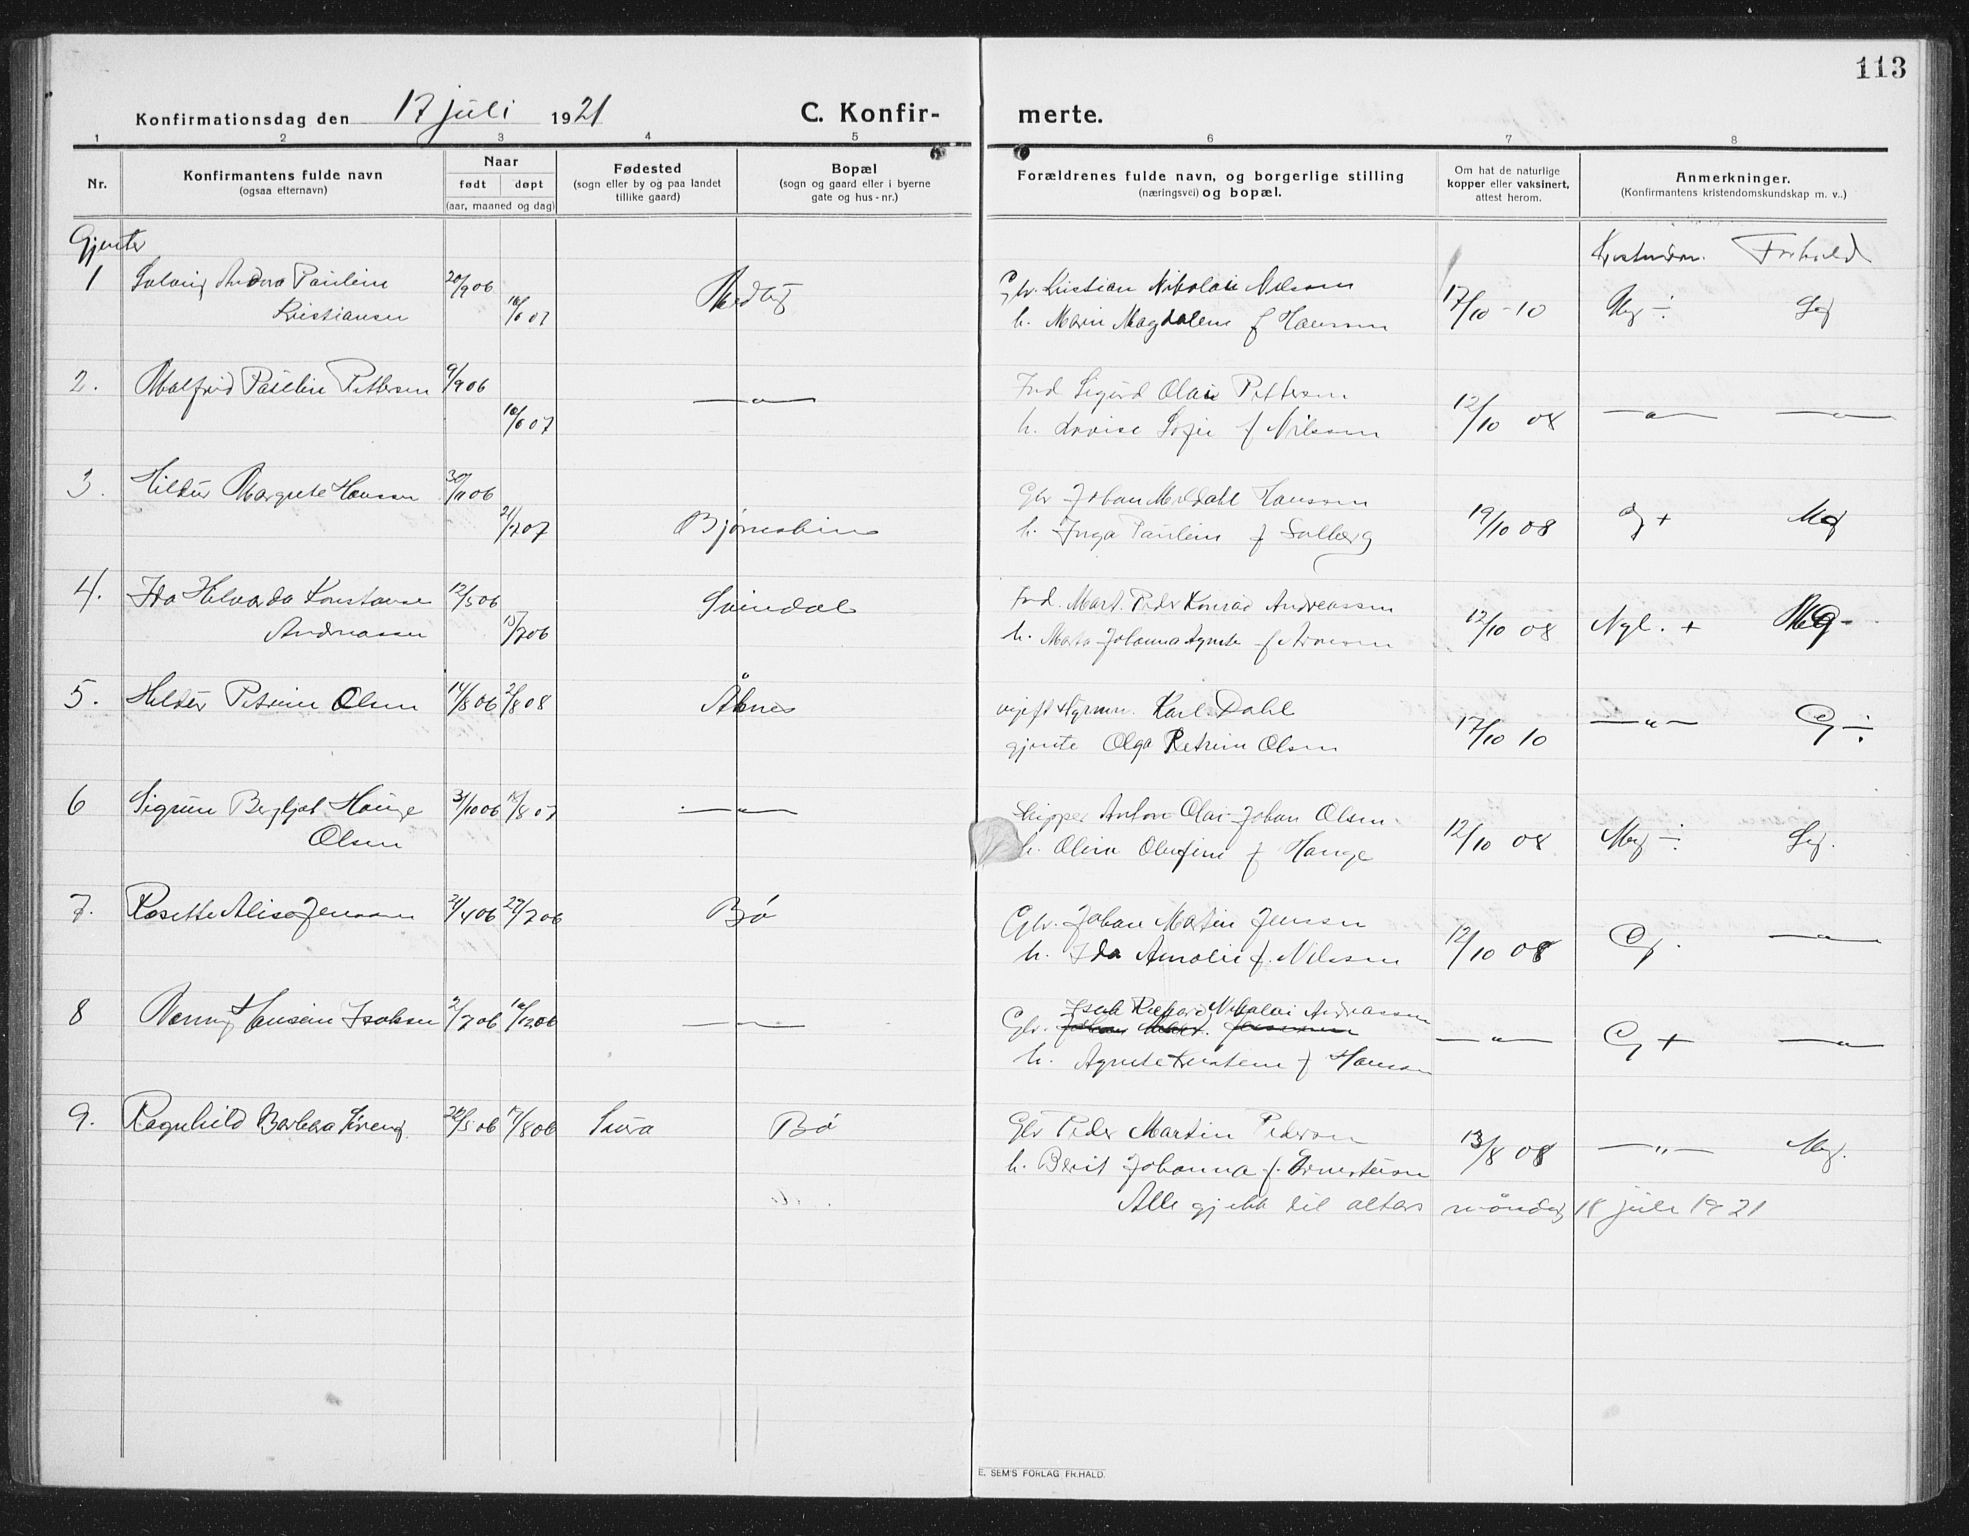 113
Konfirmationsdag den 17 juli 1921
C. Konfir-merte.
1 2 3 4 5 6 7 8
Nr.
Konfirmantens fulde navn
(ogsaa efternavn)
Naar
født døpt
(aar, maaned og dag)
Fødested
(sogn eller by og paa landet
tillike gaard)
Bopæl
(sogn og gaard eller i byerne
gate og hus-nr.)
Forældrenes fulde navn, og borgerlige stilling
(næringsvei) og bopæl.
Om hat de naturlige
kopper eller vaksinert,
attest herom.
Anmerkninger.
(Konfirmantens kristendomskundskap m. v..)
Gjenter
Kristendom. Forhold
1 Solveig Andora Pauline 20/9 06 Gbr. Kristian Nikolai Nilsen
Kristiansen 16/6 07 h. Marie Magdalene f Hansen 17/10-10 Mg ÷
2. Malfrid Pauline Pettersen 9/9 06 — " — Ind. Sigurd Olai Pettersen
16/6 07 h. Lovise Sofie f Nilssen 12/10 08 — " — — " —
3. Hildur Margrete Hansen Gbr Johan Meldahl Hansen
21/7 07 h. Inga Pauline f Solberg 19/10 08 G + Mg
4. Ida Helvarda Konstanse 12/5 06 Svindal Ind. Mart. Peder Konrad Andreassen
Andreassen 15/7 06 h. Johanna Agnete f 12/10 08 Ngl. + Mg
5. Hildur Petrine Olsen 14/8 06 2/8 08 Åbnes Karl Dahl
gjente Olga Petrine Olsen 17/10 10 — " — G ÷
6 Sigrun Bergljot Hauge 31/10 06 18/8 07 — " — Skipper Anton Olai Johan Olsen
Olsen h. Oline Olufine f Hauge 12/10 08 Mg ÷
7. Rosette Alise Jenssen 21/4 06 29/7 06 Bø Gbr. Johan Martin Jenssen
h. Ida Amalie f. Nilssen 12/10 08 G. — " —
8 Nanny Hansine Isaksen 2/7 06 — " — Isak Rikhard Nikolai Andreassen
Gbr. — " — G + — " —
h. Agnete Kristine f Hansen
9. Ragnhild Barbara 20/5 06 19/8 06 Bø Gbr Peder Martin Pedersen
h. Berit Johanna f. 13/8 08 — " — Mg.
Alle gjekk til altars måndag 18 juli 1921
E. SEM'S FORLAG FR.HALD.